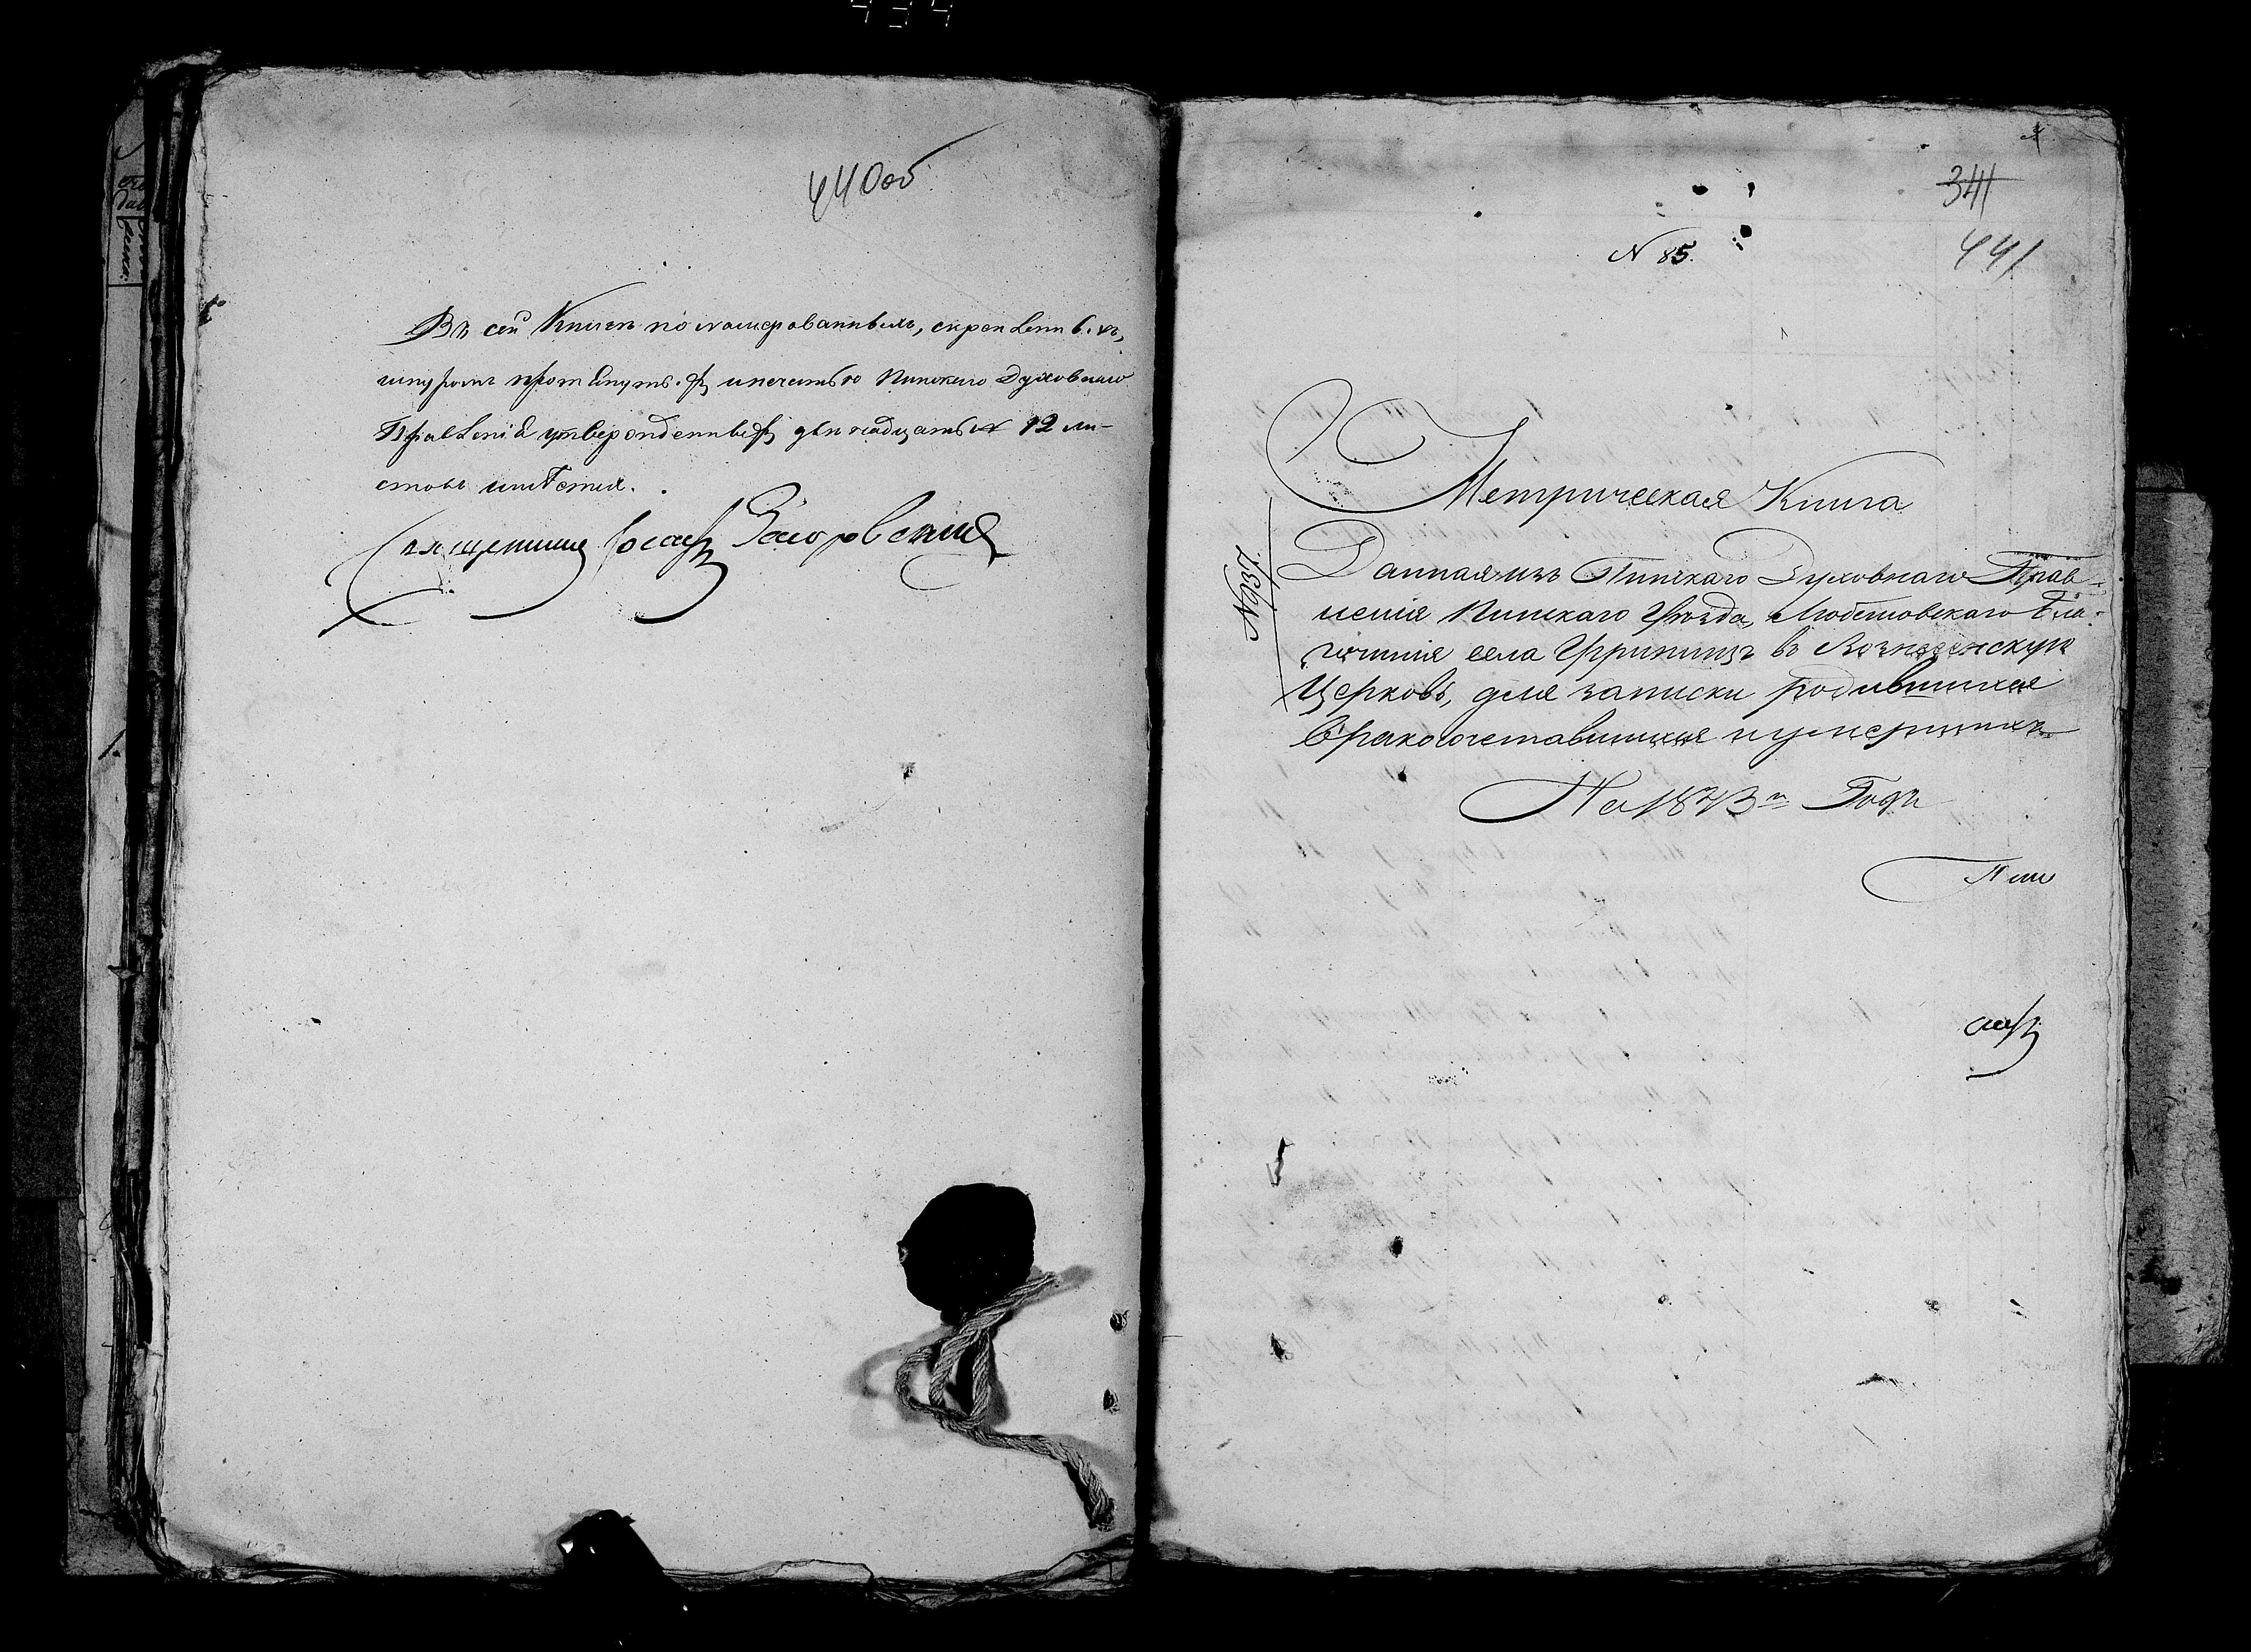 434
440об
Въ сей Книгѣ пономерованныхъ, скрепленныхъ,
шнуромъ протянутыхъ и печатью Пинскаго Духовнаго
Правленія утвержденныхъ двѣнадцать № 12 ли-
стовъ имѣется.
Священникъ Іосифъ
341
441
N 85.
Метрическая Книга
N 937.
Данная изъ Пинскаго Духовнаго Прав-
ленія Пинскаго Уѣзда, Любешовскаго Бла-
гочинія села Угриничъ въ Вознесенскую
Церковь, для записки родившихся
бракосочетавшихся и умершихъ
На 1843й Годъ